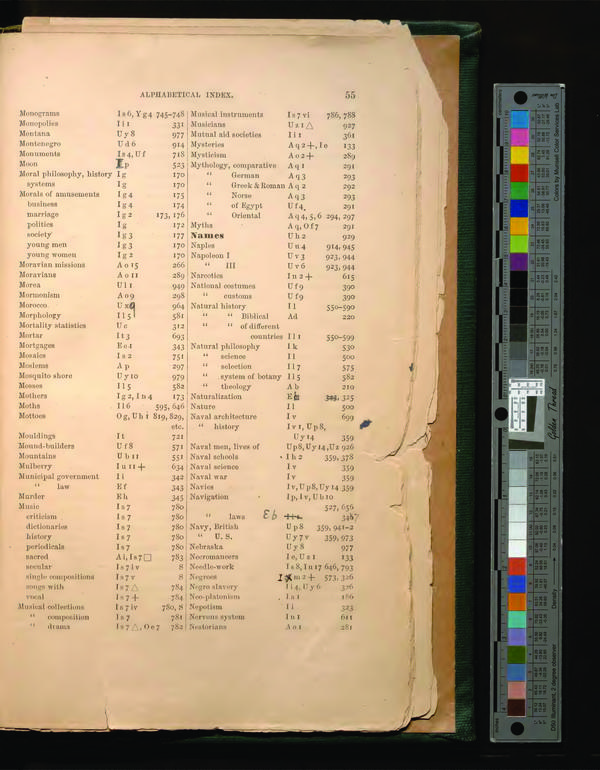 ALPHABETICAL INDEX. 55
Monograms Is6, Yg4 745-748
Monopolies Ii1 331
Montana Uy8 977
Montenegro Ud6 914
Monuments Is4, Uf 718
Moon Ip 525
Moral philosophy, history Ig 170
systems Ig 170
Morals of amusements Ig4 175
business Ig4 174
marriage Ig2 173, 176
politics Ig 172
society Ig3 177
young men Ig3 170
young women Ig2 170
Moravian missions Ao15 266
Moravians Ao11 289
Morea Ul1 949
Mormonism An9 298
Morocco Ux9 964
Morphology Il5 581
Mortality statistics Uc 312
Mortar It3 693
Mortgages Ee4 343
Mosaics Is2 751
Moslems Ap 297
Mosquito shore Uy10 979
Mosses Il5 582
Mothers Ig2, Ih4 173
Moths Il6 595, 646
Mottoes Og, Uh1 819, 829,
etc.
Mouldings It 721
Mound-builders Uf8 571
Mountains Ub11 551
Mulberry Iu11+ 634
Municipal government Ii 342
" law Ef 343
Murder Eh 345
Music Is7 780
criticism Is7 780
dictionaries Is7 780
history Is7 780
periodicals Is7 780
sacred Ai, Is7□ 783
secular Is7iv 8
single compositions Is7v 8
songs with Is7△ 784
vocal Is7+ 784
Musical collections Is7iv 780, 8
" composition Is7 781
" drama Is7△, Oe7 782
Musical instruments Is7vi 786, 788
Musicians Uz1△ 927
Mutual aid societies Ii1 361
Mysteries Aq2+, Ie 133
Mysticism Ao2+ 289
Mythology, comparative Aq1 291
" German Aq3 293
" Greek & Roman Aq2 292
" Norse Aq3 293
" of Egypt Uf4 291
" Oriental Aq4, 5, 6 294, 297
Myths Aq, Of7 291
Names Uh2 929
Naples Uu4 914, 945
Napoleon I Uv3 923, 944
" III Uv6 923, 944
Narcotics In2+ 615
National costumes Uf9 390
" customs Uf9 390
Natural history Il 550-590
" " Biblical Ad 220
" " of different
countries Il1 550-599
Natural philosophy Ik 530
" science Il 500
" selection Il7 575
" system of botany Il5 582
" theology Ab 210
Naturalization 325
Nature Il 500
Naval architecture Iv 699
" history Iv1, Up8,
Uy14 359
Naval men, lives of Up8, Uy14, Uz 926
Naval schools Ih2 359, 378
Naval science Iv 359
Naval war Iv 359
Navies Iv, Up8, Uy14 359
Navigation Ip, Iv, Ub10
527, 656
" laws Eb 348?
Navy, British Up8 359, 941-2
" U. S. Uy7v 359, 973
Nebraska Uy8 977
Necromancers Ie, Uz1 133
Needle-work Is8, In17 646, 793
Negroes m2+ 573, 326
Negro slavery Ii4, Uy6 326
Neo-platonism Ia1 186
Nepotism Ii 323
Nervous system In1 611
Nestorians Ao1 281
Golden Thread
Density